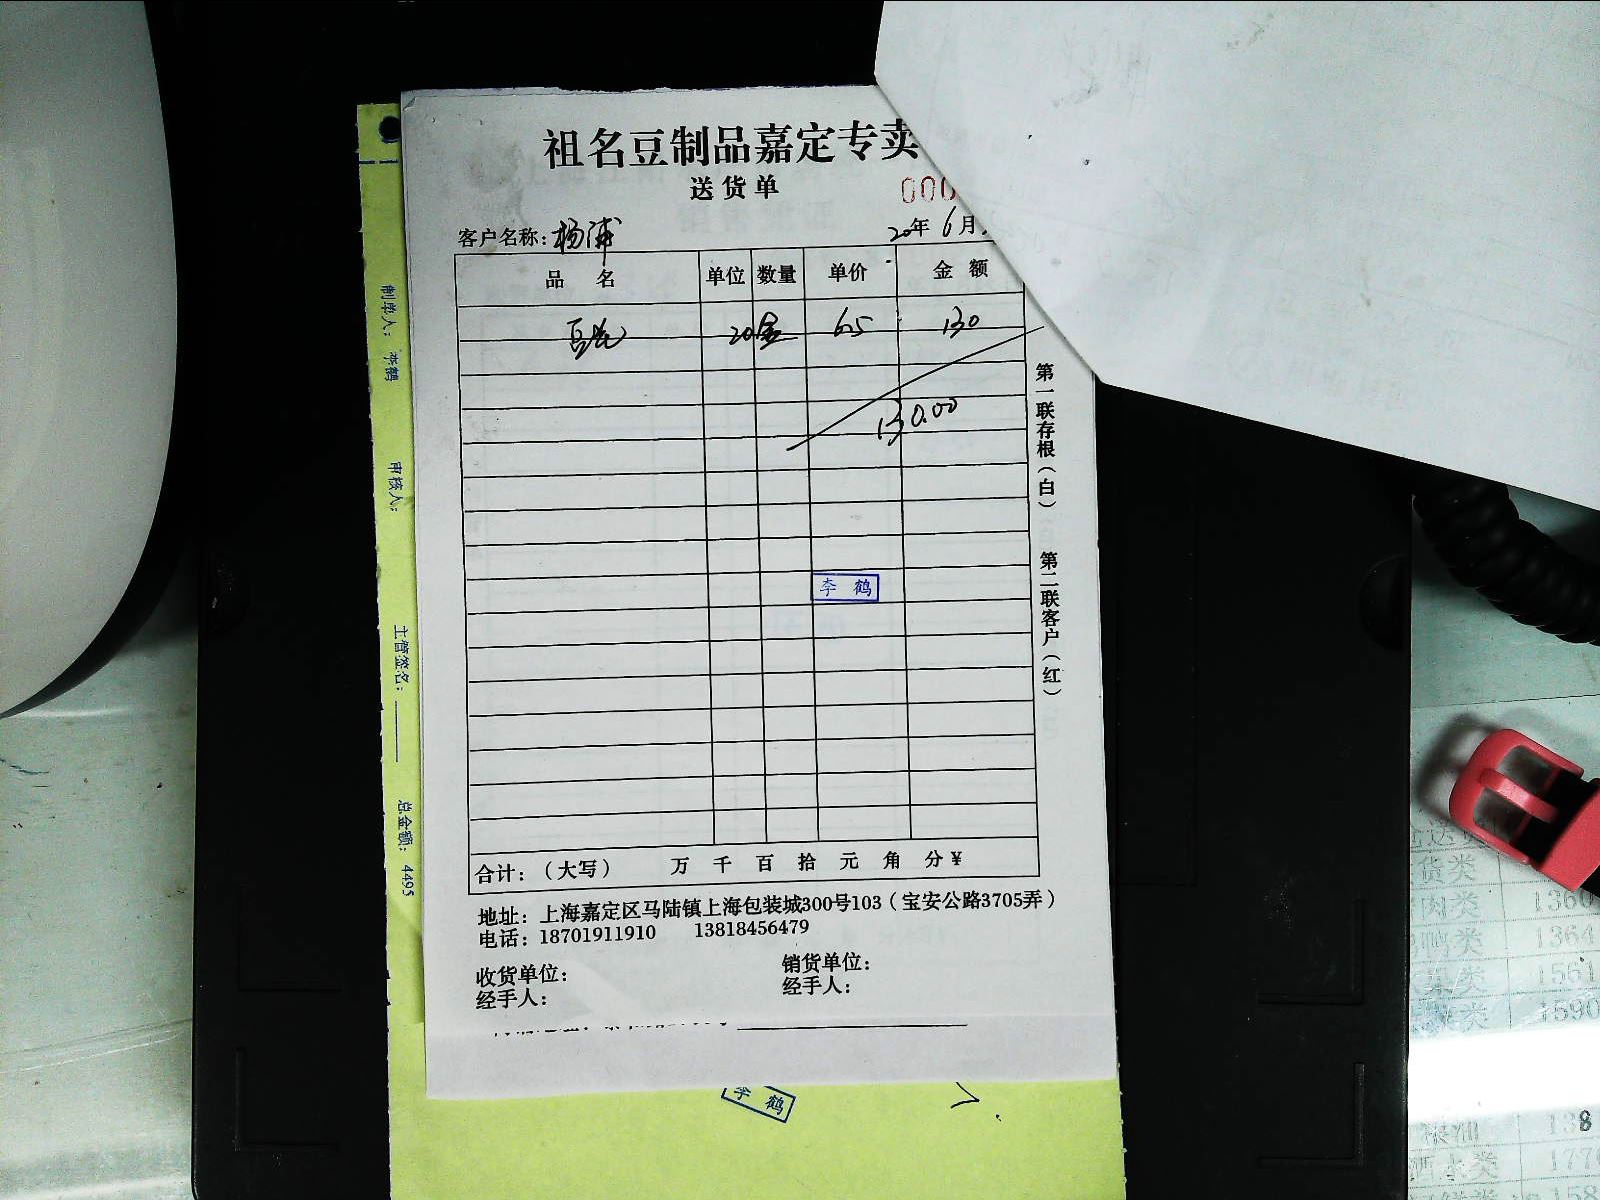 祖名豆制品嘉定专卖
送货单
000
客户名称：杨浦
20年6月
品 名 单位 数量 单价 金 额
20 6.5 130
130.00
李 鹤
合计：（大写） 万 千 百 拾 元 角 分￥
地址：上海嘉定区马陆镇上海包装城300号103（宝安公路3705弄）
电话：18701911910 13818456479
收货单位：
销货单位：
经手人：
经手人：
第一联存根（白） 第二联客户（红）
制单人：李鹤 审核人： 主管签名： 总金额：4495
李 鹤
货类 1360
肉类 1364
类 1561
类 1590
138
类 177